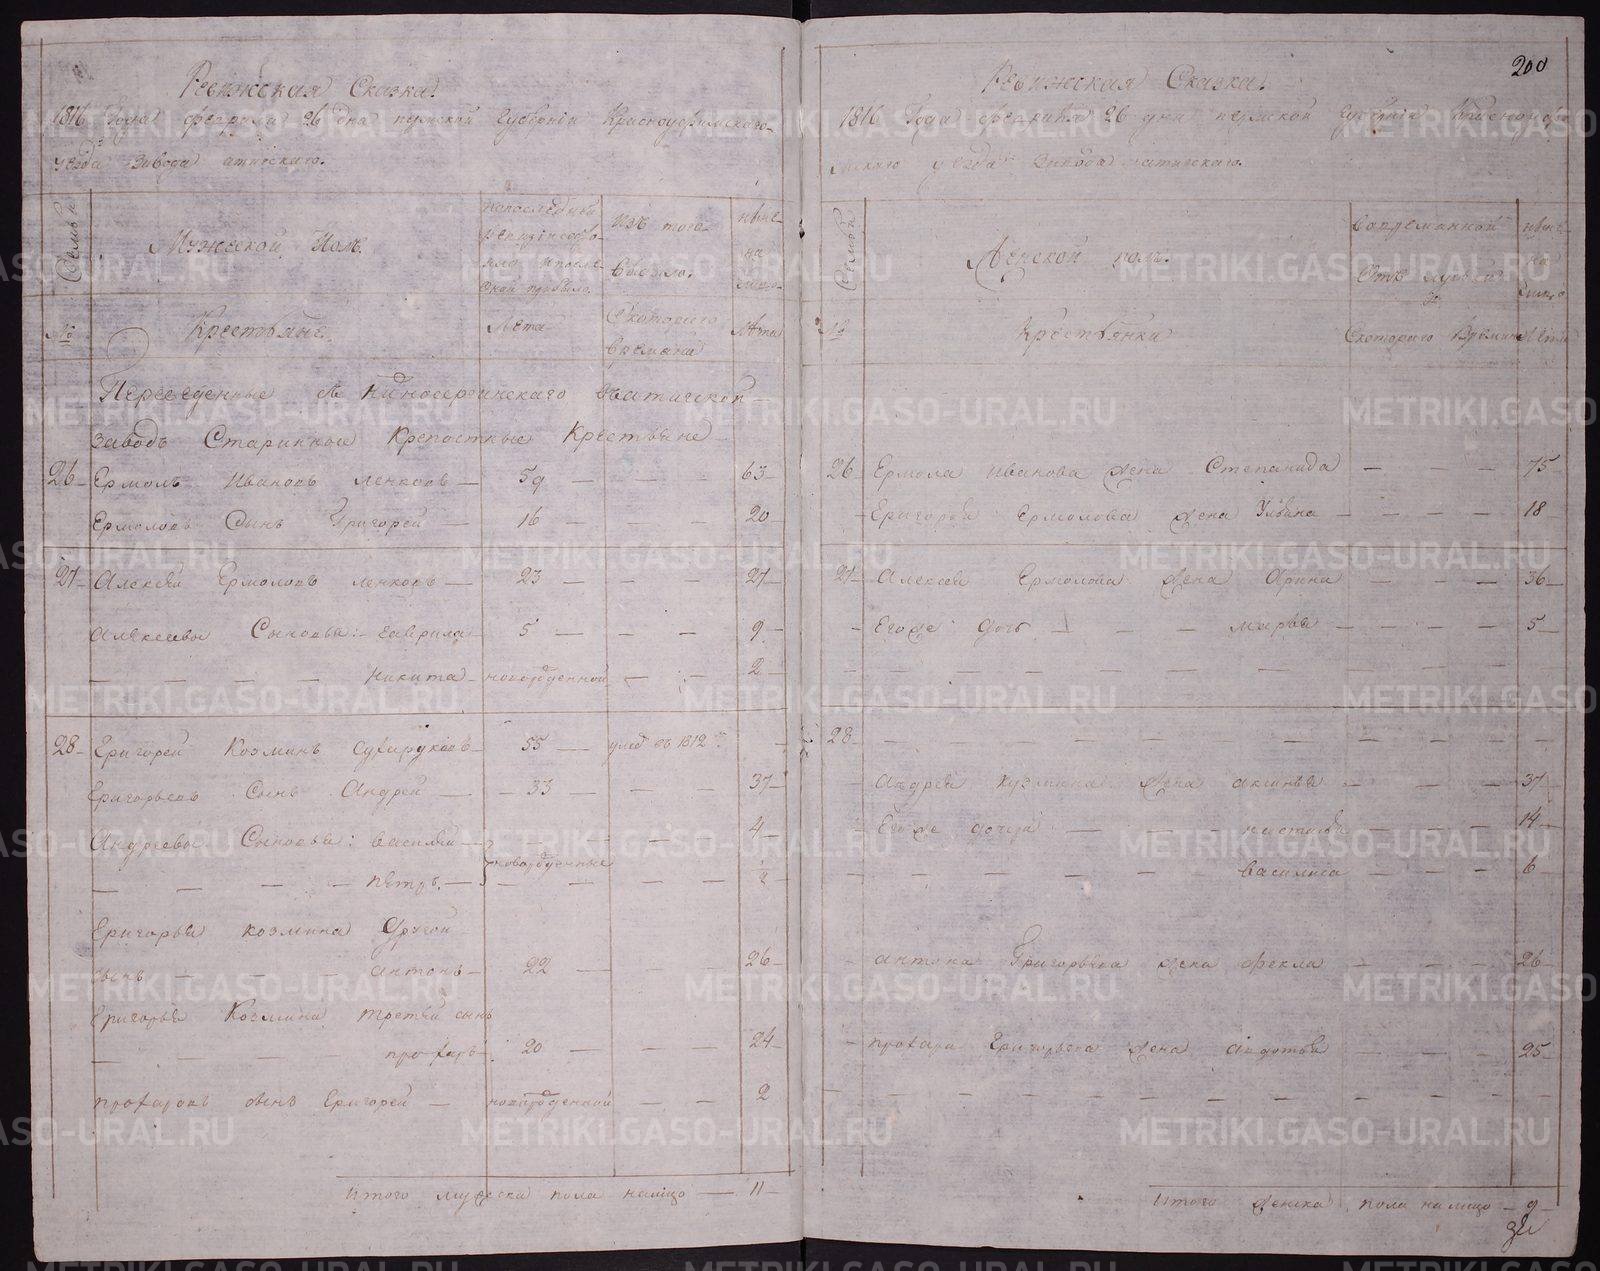 Ревижская Сказка!
1816 Года февраля 26 дня пермской Губернiи Красноуфимского
уезда завода атигского.
Семьи
Мужеской Полъ.
Изъ того
выбыло.
ныне
на
лицо
№
Крестьяне.
Лета
Скоторого
времяни
Лета
Переведенные въ атигской
заводъ Старинные Крепостные Крестьяне
26 Ермолъ Ивановъ ленковъ 59 63
Ермоловъ Сынъ Григорей 16 20
27 Алексей Ермоловъ ленковъ 23 27
Алексеевы Сыновья: Гаврила 5 9
Никита новорожденной 2
28 Григорей Козминъ Сухоруковъ 55 умеръ въ 1812
Григорьевъ Сынъ Андрей 33 37
Андреевы Сыновья: василей 4
петръ новорожденные 2
Григорья козмина другой
сынъ антонъ 22 26
Григорья Козмина третей сынъ
прохоръ 20 24
прохоровъ сынъ Григорей новорожденной 2
Итого мужеска пола налицо 11
200
Ревижская Сказка!
1816 Года февраля 26 дня пермской Губернiи Красноуфи
мскаго уезда завода атигскаго.
Семьи
Женской полъ.
Вовремянной
Отлучки
ныне
на
лицо
№
Крестьянки
Скотораго времяни Лета
26 Ермола Иванова жена Степанида 75
Григорья Ермолова жена Ульяна 18
27 Алексея Ермолова жена Арина 36
Егоже дочь марья 5
28
Андрея жена аксинья 37
Егоже дочери настасья 14
василиса 6
антона Григорьева жена фекла 26
прохора Григорьева жена авдотья 25
Итого женска пола налицо 9